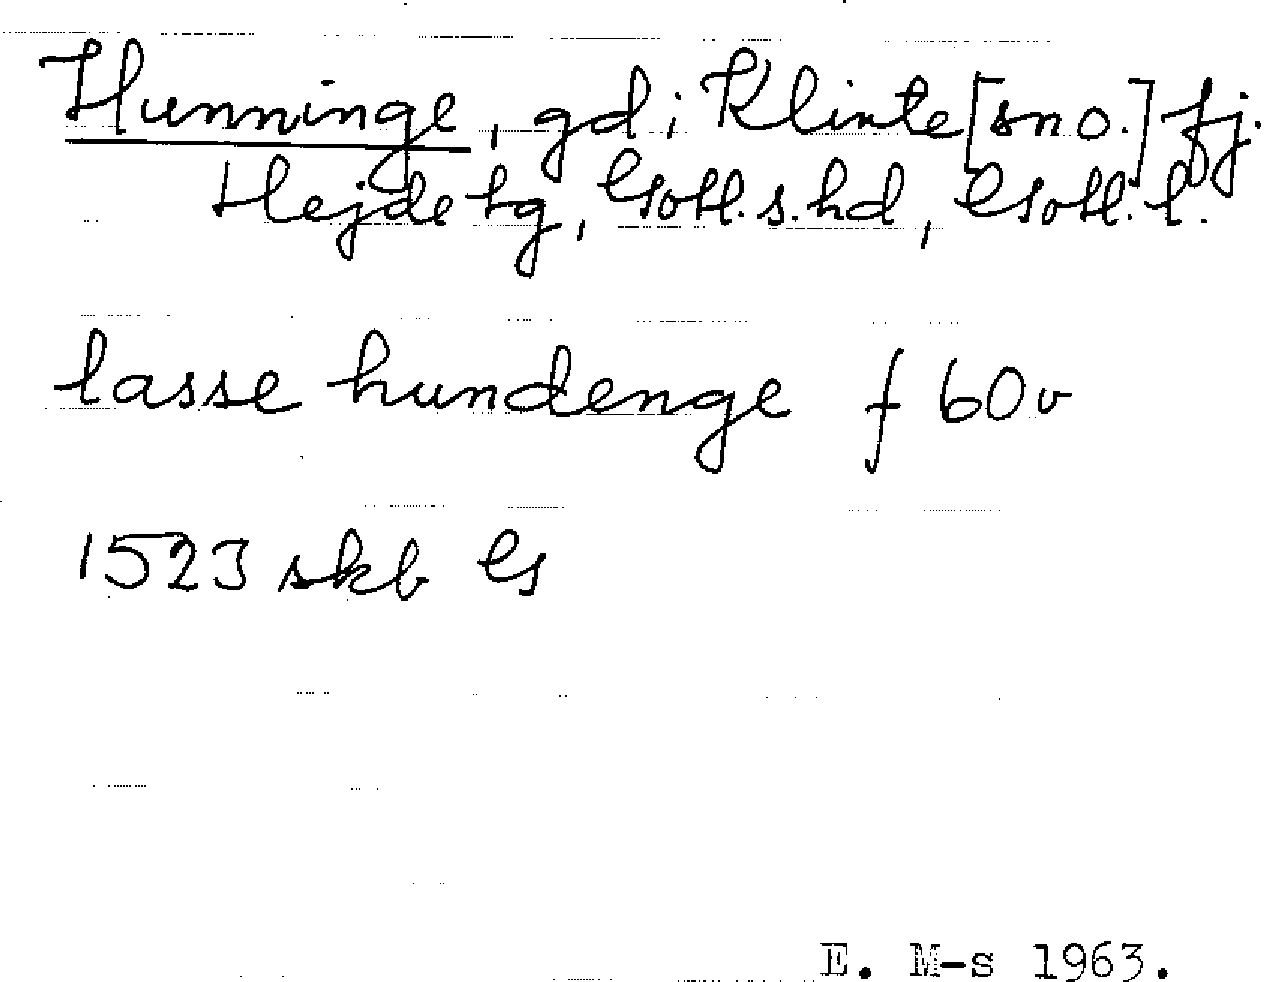 Hunninge, gd i Klinte [sn o.] fj.
Hejde tg, Gotl. s. hd, Gotl. l.
lasse hundenge f 60v
1523 skb G
E. M-s 1963.